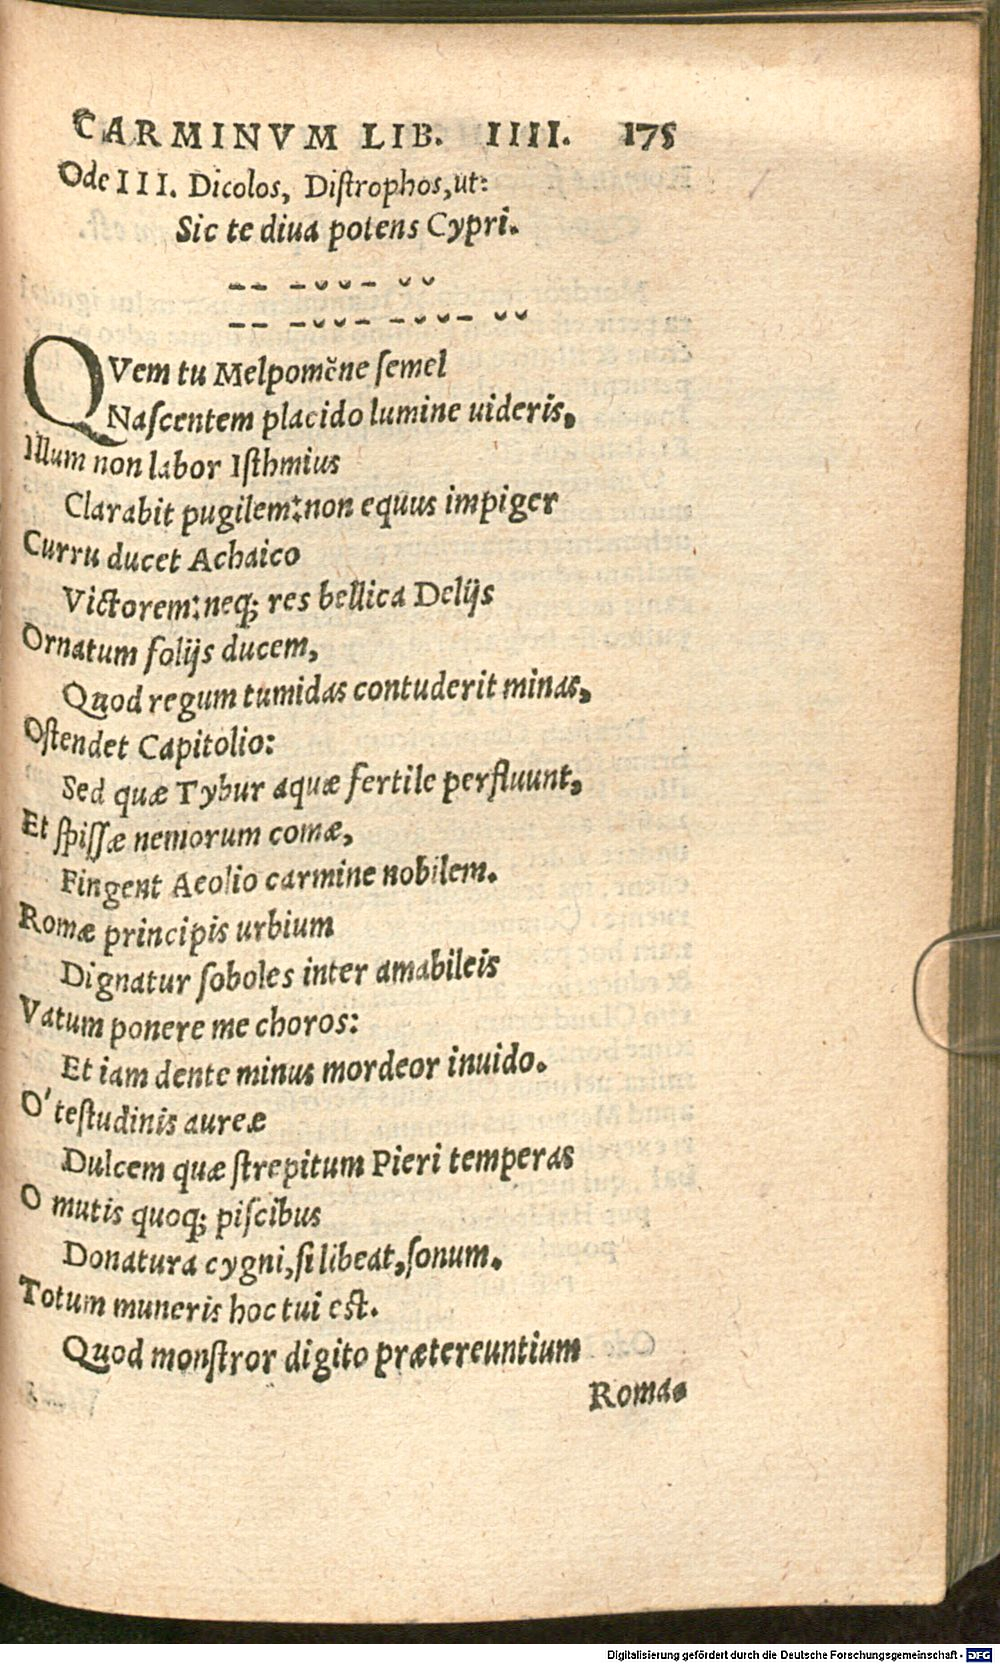 CARMINVM LIB. IIII. 175
Ode III. Dicolos, Diſtrophos, ut:
Sic te diua potens Cypri.
‒‒ ‒⏑⏑‒ ⏑⏑
‒‒ ‒⏑⏑‒ ‒⏑⏑‒ ⏑⏑
QVem tu Melpomĕne ſemel
Naſcentem placido lumine uideris,
Illum non labor Iſthmius
Clarabit pugilem: non equus impiger
Curru ducet Achaico
Victorem: neq; res bellica Delijs
Ornatum folijs ducem,
Quod regum tumidas contuderit minas,
Oſtendet Capitolio:
Sed quæ Tybur aquæ fertile perfluunt,
Et ſpiſſæ nemorum comæ,
Fingent Aeolio carmine nobilem.
Romæ principis urbium
Dignatur ſoboles inter amabileis
Vatum ponere me choros:
Et iam dente minus mordeor inuido.
O' teſtudinis aureæ
Dulcem quæ ſtrepitum Pieri temperas
O mutis quoq; piſcibus
Donatura cygni, ſi libeat, ſonum.
Totum muneris hoc tui eſt.
Quod monſtror digito prætereuntium
Roma-
Digitalisierung gefördert durch die Deutsche Forschungsgemeinschaft - DFG